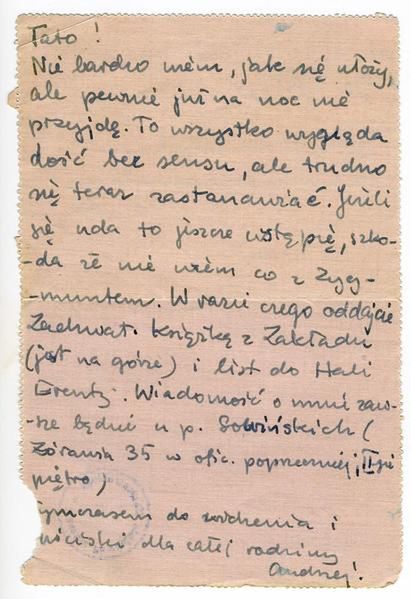 Tato!
Nie bardzo wiem, jak się ułoży,
ale pewnie już na noc nie
przyjdę. To wszystko wygląda
dość bez sensu, ale trudno
się teraz zastanawiać. Jeśli
się uda to jeszcze wstąpię, szko-
-da że nie wiem co z Zyg-
-muntem. W razie czego oddajcie
Zachwat. Książkę z Zakładu
(jest na górze) i list do Hali
. Wiadomość o mnie zaw-
sze będzie u p. Sowińskich (
Żórawia 35 w ofic. poprzecznej, II-gie
piętro)
tymczasem do widzenia i
uściski dla całej rodziny
Andrzej!